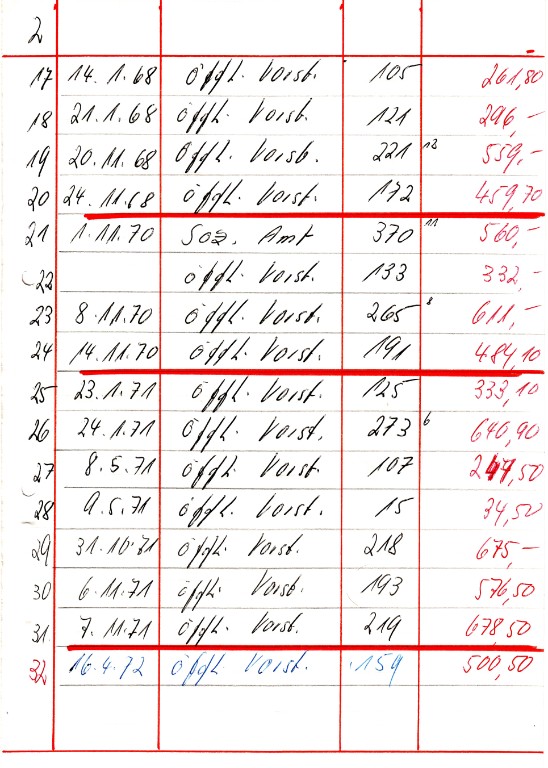 2
17 14.1.68 Öfftl. Vorst. 105 261,80
18 21.1.68 Öfftl. Vorst. 121 296,-
19 20.11.68 Öfftl. Vorst. 221 12 559,-
20 24.11.68 Öfftl. Vorst. 172 459,70
21 1.11.70 Soz. Amt 370 11 560,-
22 Öfftl. Vorst. 133 332,-
23 8.11.70 Öfftl. Vorst. 265 8 611,-
24 14.11.70 Öfftl. Vorst. 191 484,10
25 23.1.71 Öfftl. Vorst. 125 333,10
26 24.1.71 Öfftl. Vorst. 273 6 640,90
27 8.5.71 Öfftl. Vorst. 107 247,50
28 9.5.71 Öfftl. Vorst. 15 34,50
29 31.10.71 Öfftl. Vorst. 218 675,-
30 6.11.71 Öfftl. Vorst. 193 576,50
31 7.11.71 Öfftl. Vorst. 219 678,50
32 16.4.72 Öfftl. Vorst. 159 500,50